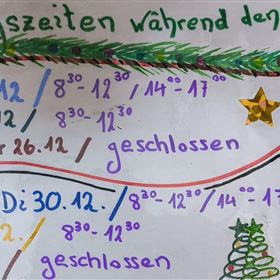 gszeiten während den
12 / 8³⁰-12³⁰ / 14⁰⁰-17⁰⁰
12 / 8³⁰-12³⁰
26.12 / geschlossen
Di 30.12. / 8³⁰-12³⁰ / 14⁰⁰-17
2. / 8³⁰-12³⁰
/ geschlossen